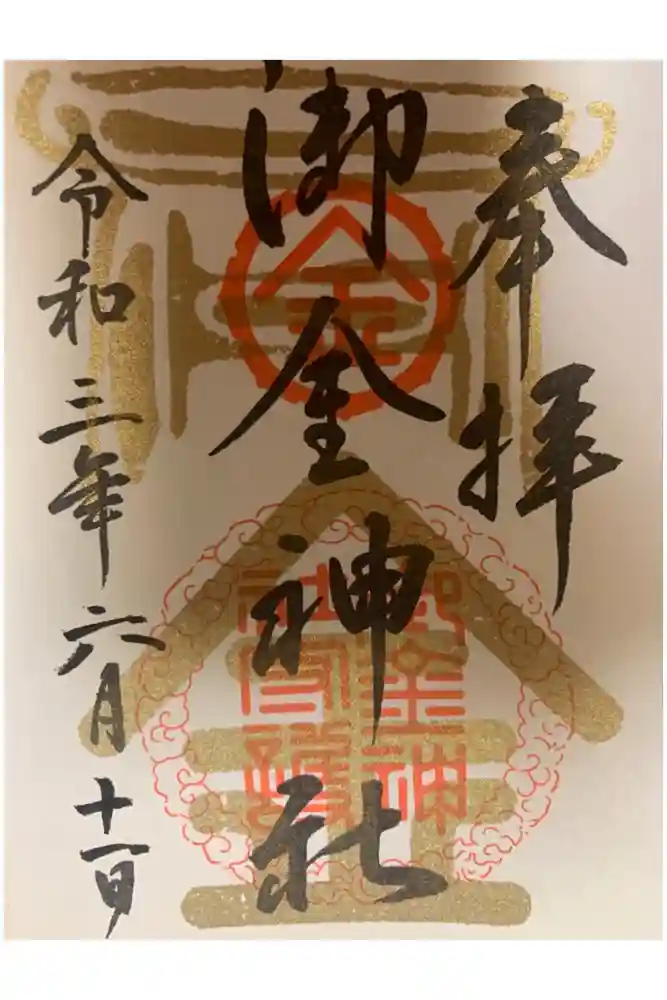 奉拝
御金神社
令和三年六月十一日
金
御金神
社守護